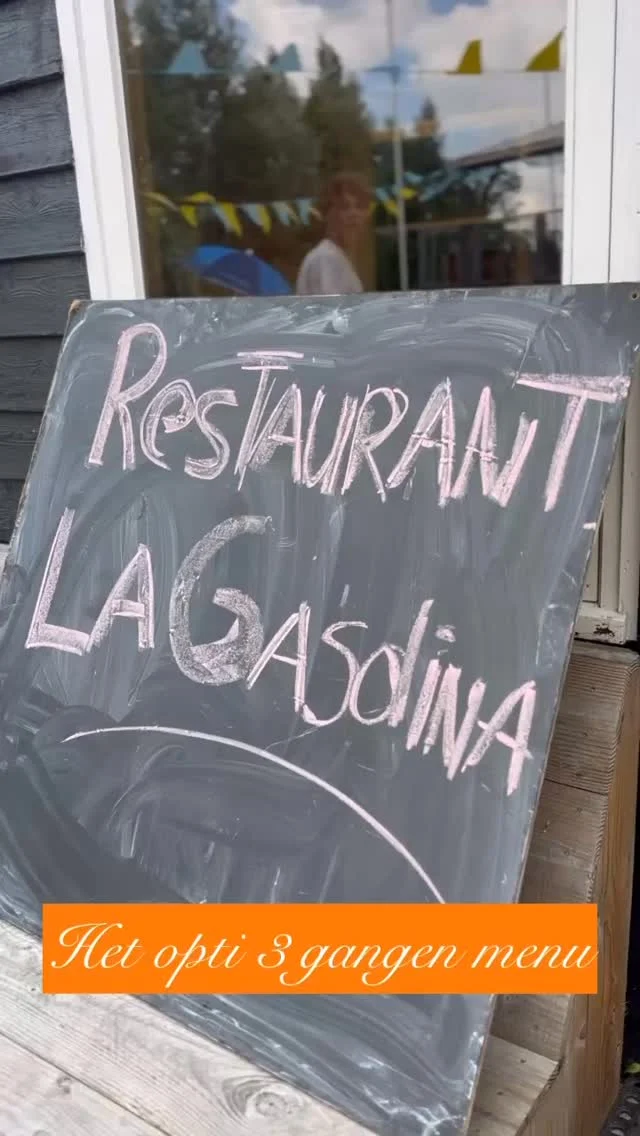 RESTAURANT
LA GASOLINA
Het opti 3 gangen menu